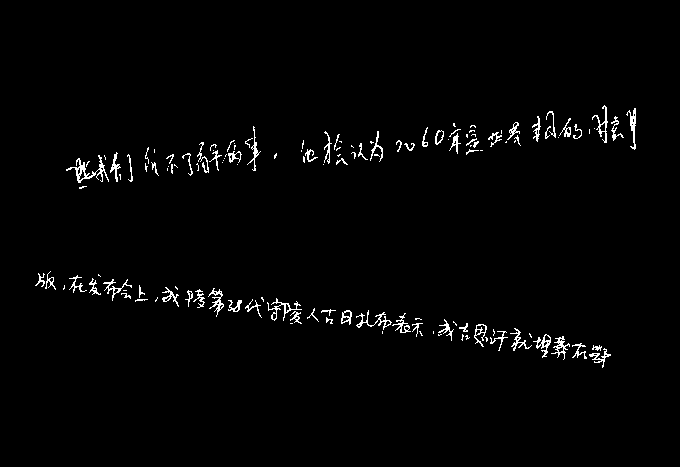 些我们所不了解的事。他推认为2060年是世界末日的时刻
版,在发布会上,成陵第38代守陵人古日扎布表示,成吉思汗就埋葬在鄂